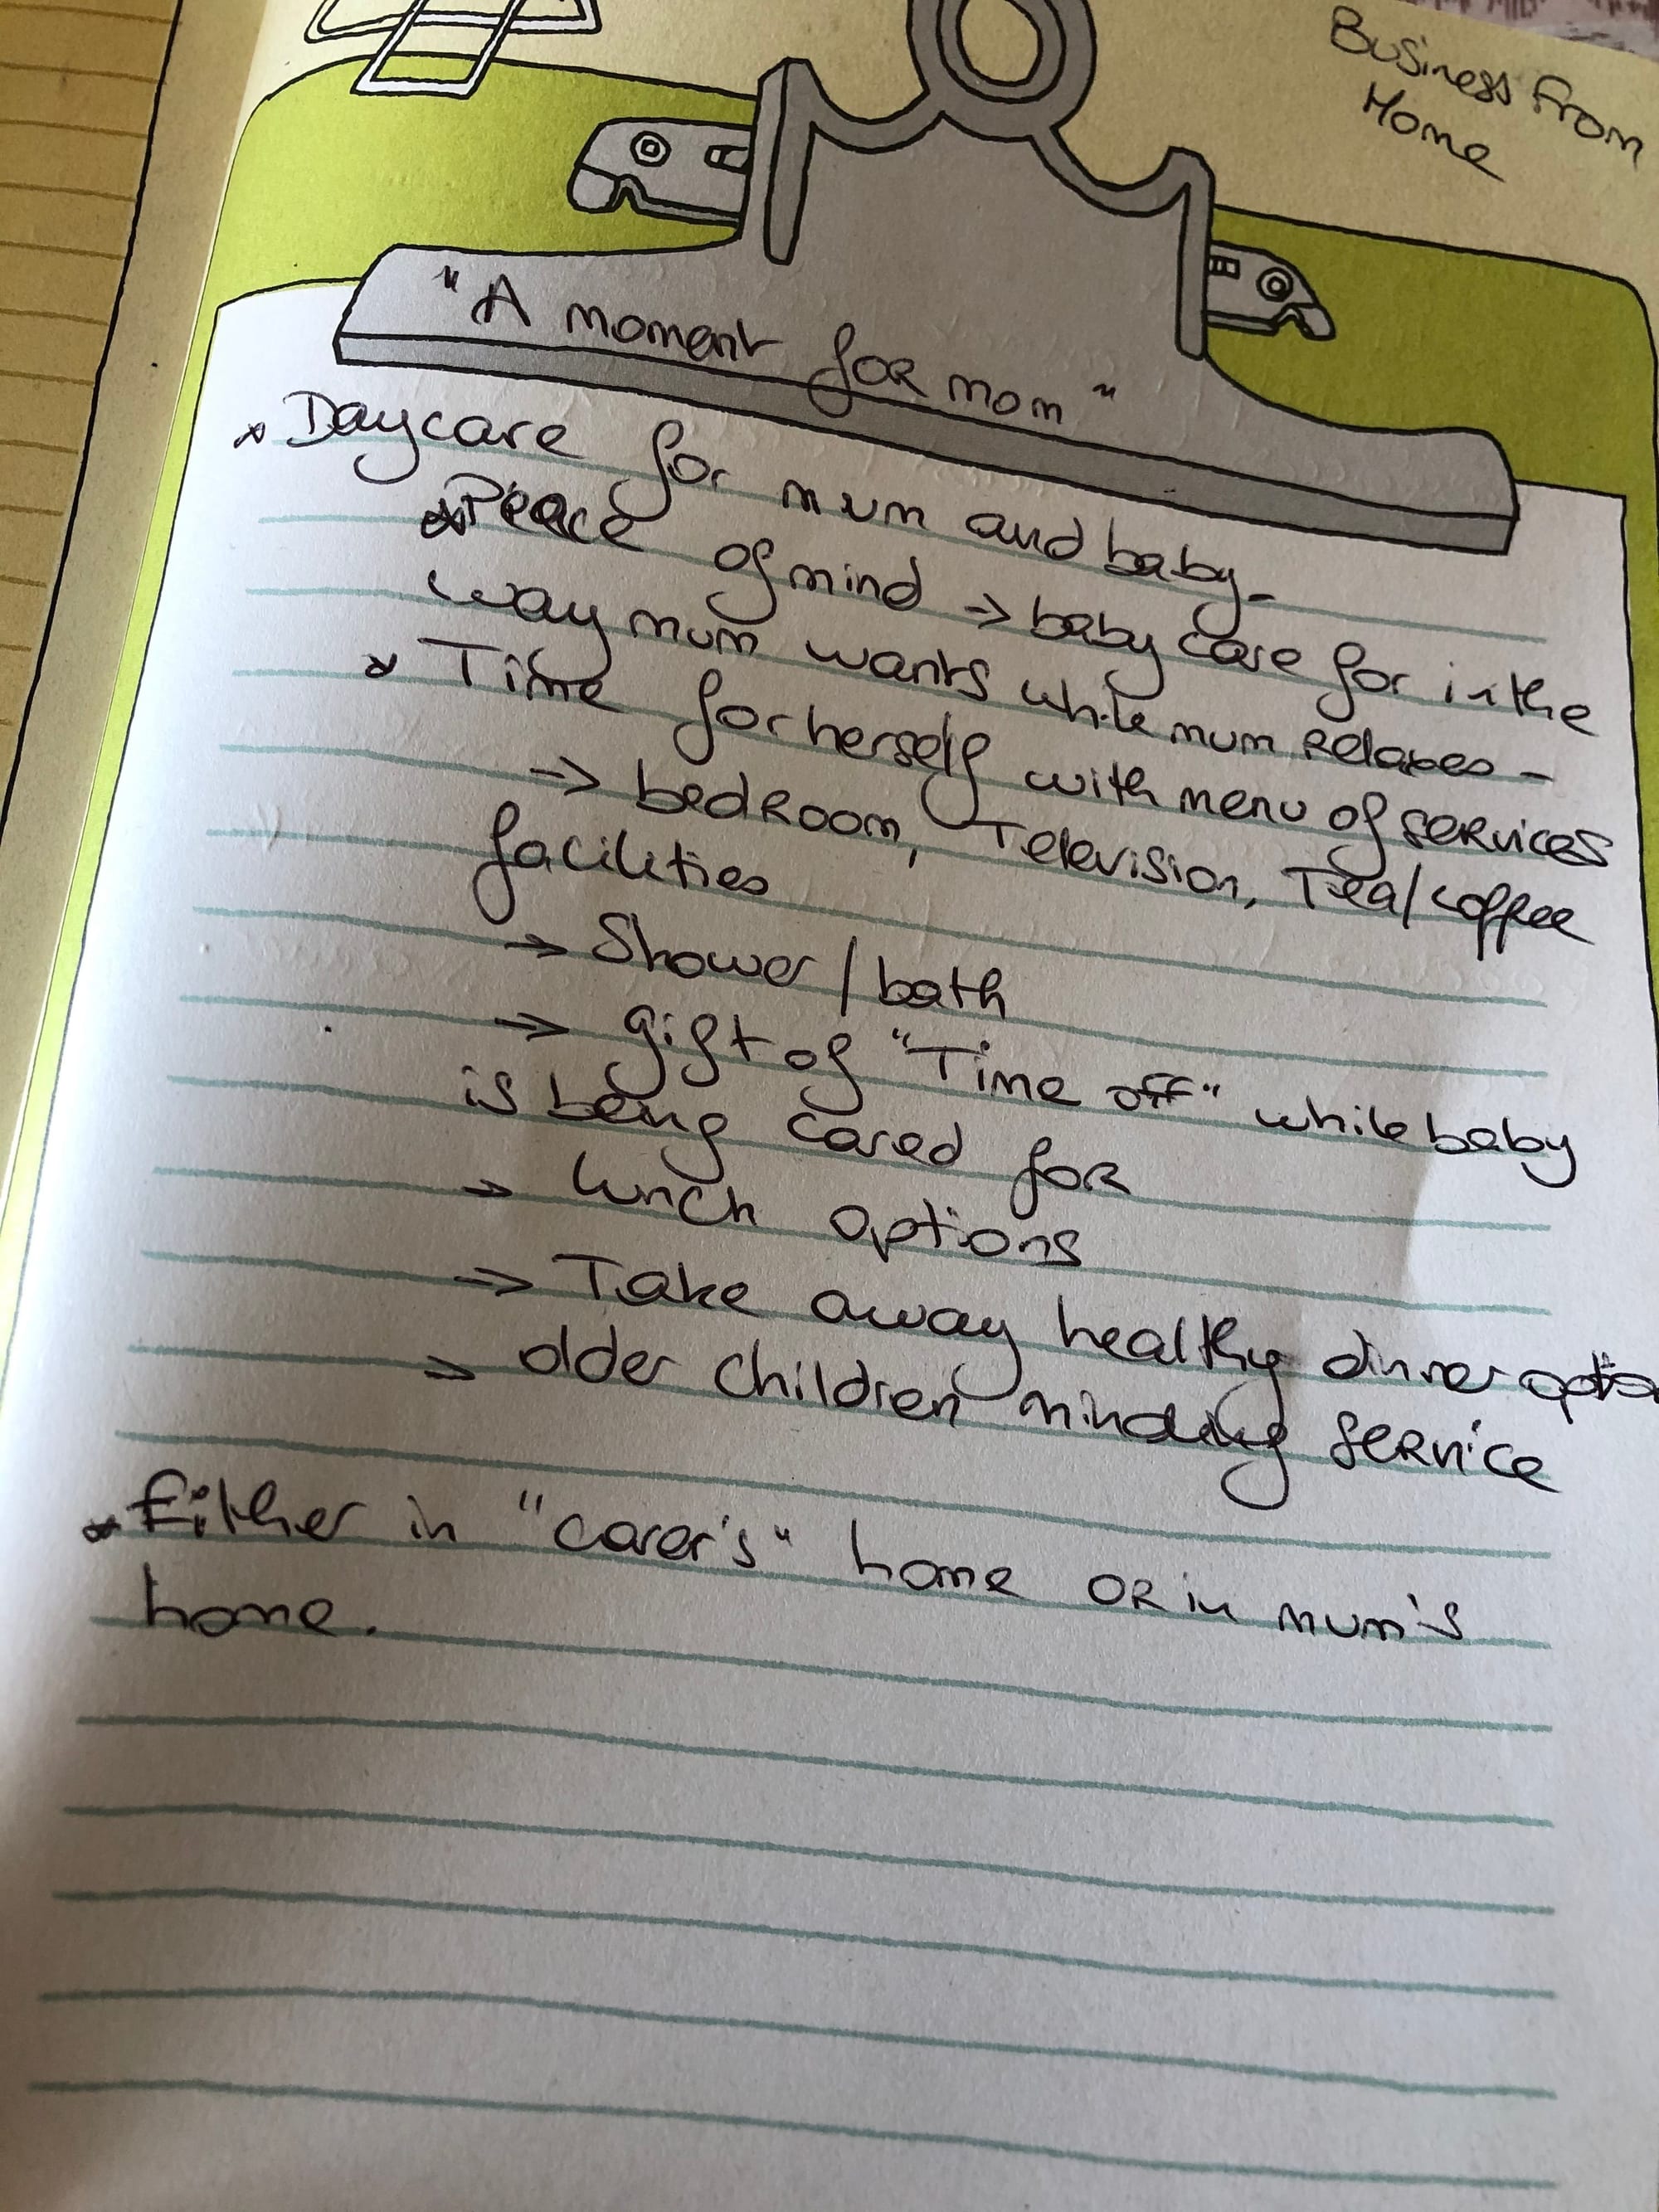 Business From
Home
"A moment for mom"
* Daycare for mum and baby-
* Peace of mind → baby care for in the
way mum wants while mum relaxes -
* Time for herself with menu of services
→ bedroom, Television, Tea/coffee
facilities
→ Shower / bath
→ gift of "Time off" while baby
is being cared for
→ lunch options
→ Take away healthy dinner
→ older children minding service
* Either in "carer's" home OR in mum's
home.